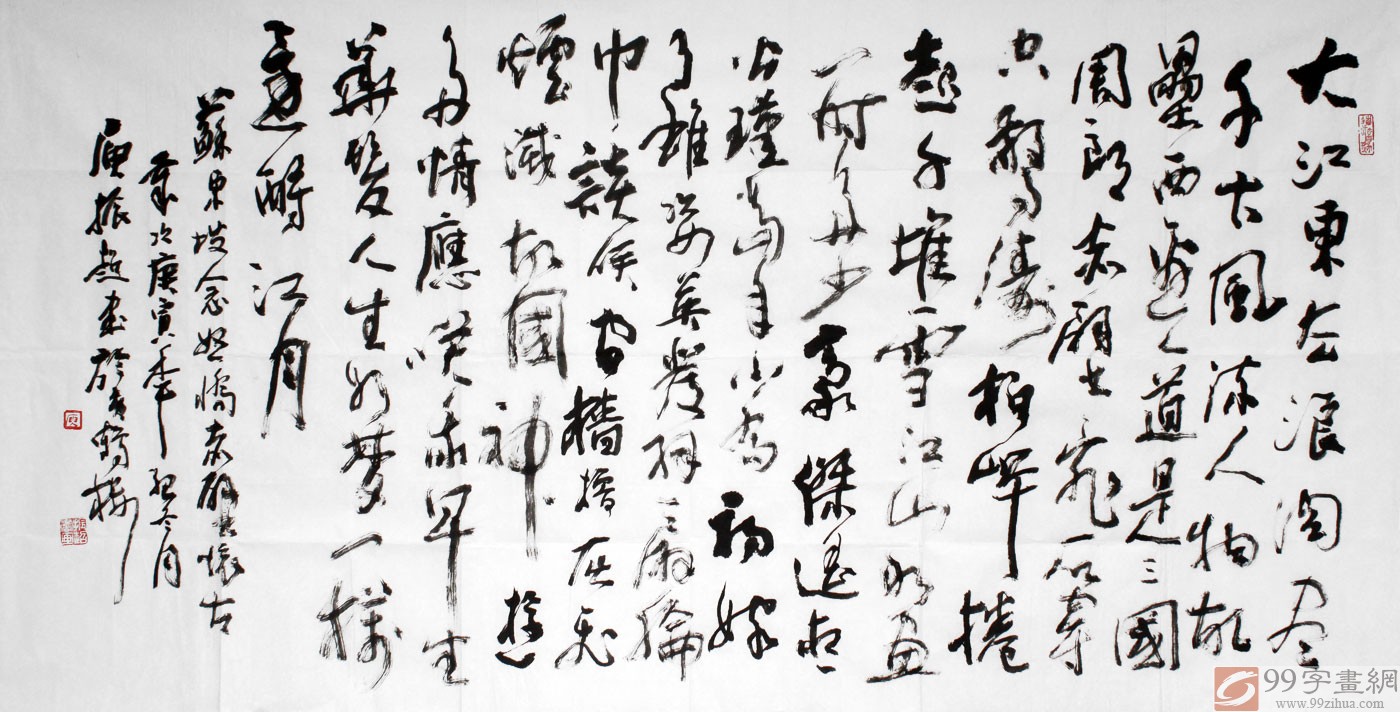 大江東去浪淘尽
千古風流人物故
壘西邊人道是三國
周郎赤壁亂石穿
空驚濤拍岸捲
起千堆雪江山如畫
一時多少豪傑遥想
公瑾當年小喬初嫁
了雄姿英發羽扇綸
巾談笑間檣櫓灰飛
煙滅故國神遊
多情應笑我早生
華髮人生如夢一樽
還酹江月
蘇東坡念奴嬌赤壁懷古
歲次庚寅年初冬月
振超書於黄鶴樓
99字畫網
www.99zihua.com